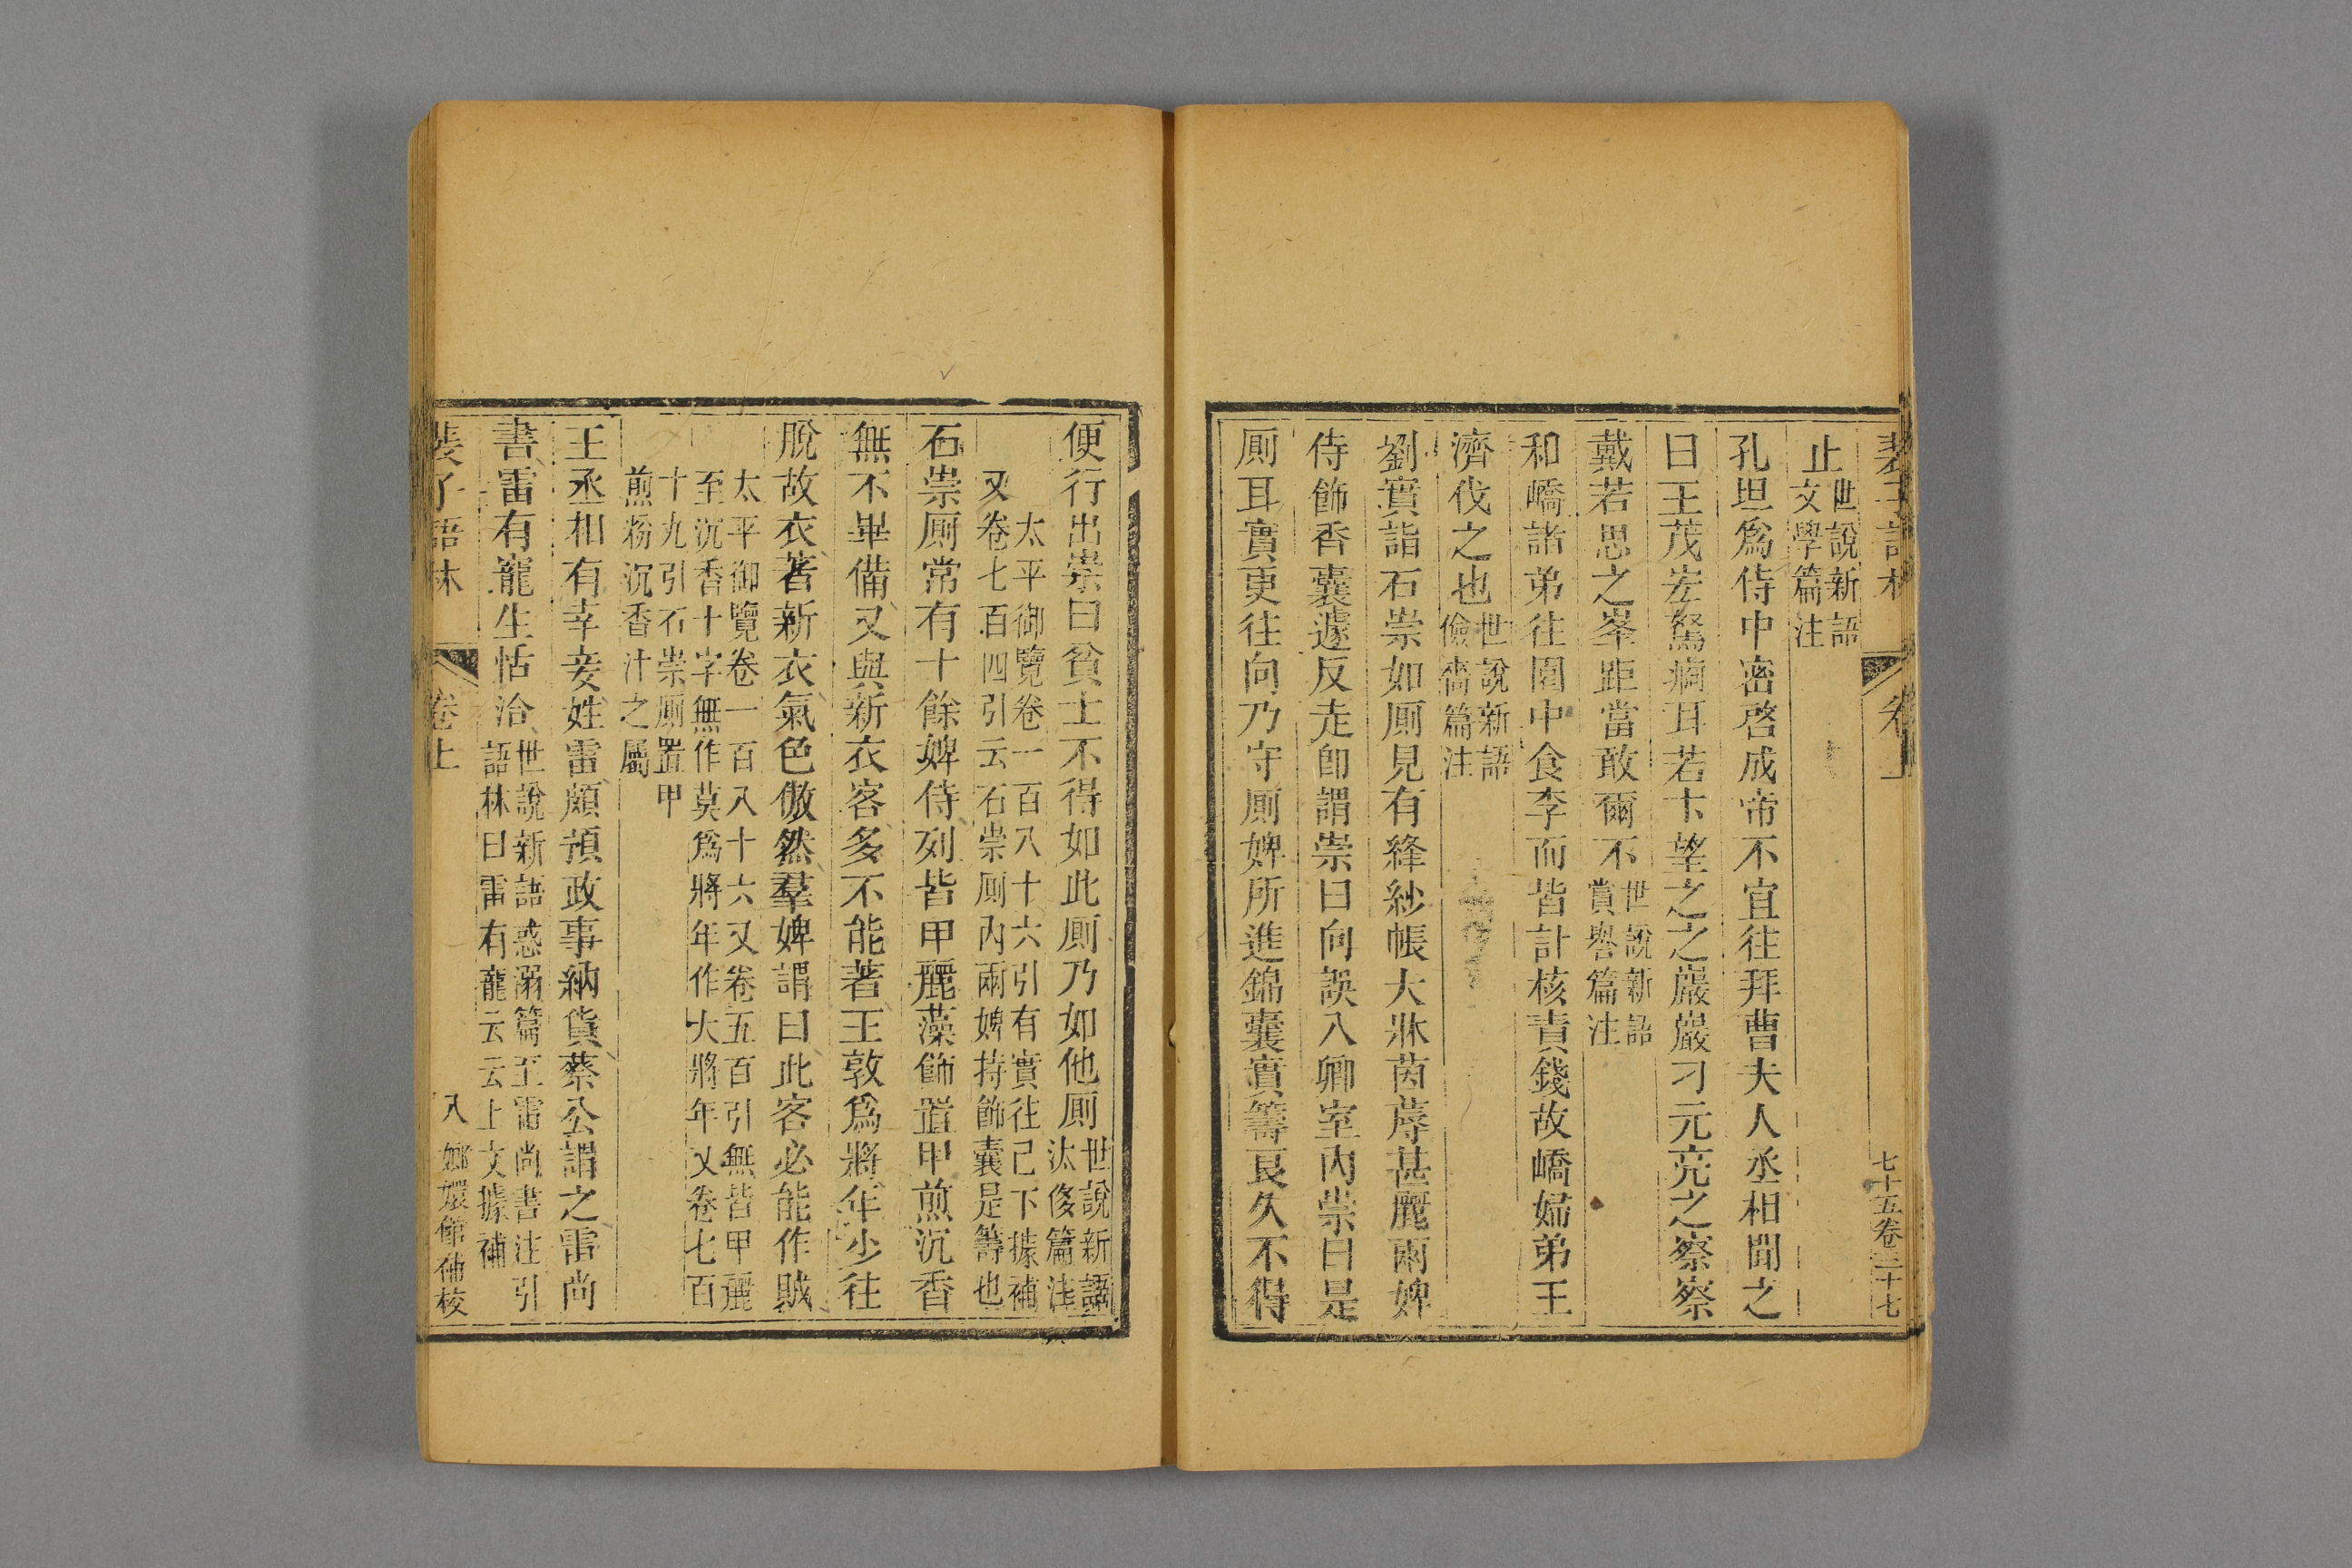 裴子語林 卷上 七十五卷三十七
止世說新語
文學篇注
孔坦爲侍中密啓成帝不宜往拜曹夫人丞相聞之
曰王茂宏駑痾耳若卞望之之巖巖刁元亮之察察
戴若思之峯距當敢爾不世說新語
賞譽篇注
和嶠諸弟往園中食李而皆計核責錢故嶠婦弟王
濟伐之也世說新語
儉嗇篇注
劉寔詣石崇如厠見有絳紗帳大牀茵蓐甚麗兩婢
侍飾香囊遽反走卽謂崇曰向誤入卿室內崇曰是
厠耳寔更往向乃守厠婢所進錦囊實籌良久不得
便行出崇曰貧士不得如此厠乃如他厠世說新語
汰侈篇注
太平御覽卷一百八十六引有寔往已下據補
又卷七百四引云石崇厠內兩婢持飾囊是籌也
石崇厠常有十餘婢侍列皆甲麗藻飾置甲煎沉香
無不畢備又與新衣客多不能著王敦爲將年少往
脫故衣著新衣氣色傲然羣婢謂曰此客必能作賊
太平御覽卷一百八十六又卷五百引無皆甲麗
至沉香十字無作莫爲將年作大將年又卷七百
十九引石崇厠置甲
煎粉沉香汁之屬
王丞相有幸妾姓雷頗預政事納貨蔡公謂之雷尚
書雷有寵生恬洽世說新語惑溺篇王雷尚書注引
語林曰雷有寵云云上文據補
裴子語林 卷上 八 嫏嬛館補校